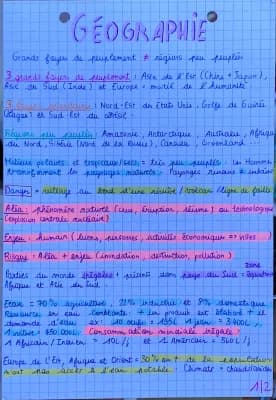 GÉOGRAPHIE
Grands foyers de peuplement ≠ régions peu peuplés
3 grands foyers de peuplement : Asie de l'Est (Chine + Japon),
Asie du Sud (Inde) et Europe = moitié de l'humanité
3 foyers secondaires : Nord-Est des États Unis, Golfe de Guinée
et Sud Est du
Régions peu peuplés : Amazonie, Antarctique, Australie, Afrique
du Nord, Sibérie (Nord de la Russie), Canada, Groenland...
Milieux polaires et tropicaux/secs = très peu peuplés. Les Hommes
transforment les paysages naturels. Paysages ruraux ≠ urbains
Danger = au bord d'une rivière/volcan/ligne de faille
Aléa : phénomène naturel (crue, éruption, séisme) ou technologique
(explosion centrale nucléaire)
Enjeu : humain (biens, personnes, activités économiques => villes
Risque : Aléa + enjeu (inondation, destruction, pollution)
Parties du monde inégales + présent dans pays du Sud = zone
Afrique et Asie du Sud.
Eau = 70% agriculture, 22% industrie et 8% domestique
Ressource en eau constante
demande d'eau ex:
Consommation mondiale inégale :
1 Africain/Indien = 10L/j et 1 Américain = 560L/j
Europe de l'Est, Afrique et Orient = 30% de la population
n'ont pas accès à l'eau potable. Climats =
1/2